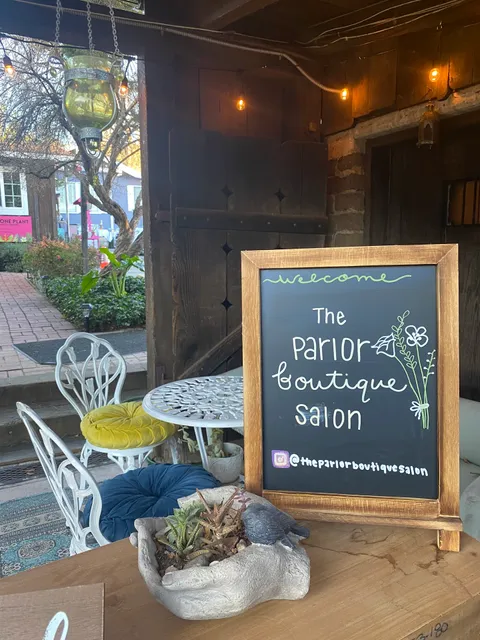 welcome
The
Parlor
boutique
salon
@theparlorboutiquesalon